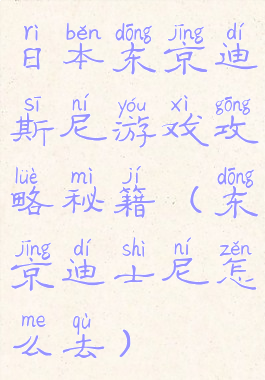 rì běn dōng jīng dí
日本东京迪
sī ní yóu xì gōng
斯尼游戏攻
lüè mì jí dōng
略秘籍（东
jīng dí shì ní zěn
京迪士尼怎
me qù
么去）